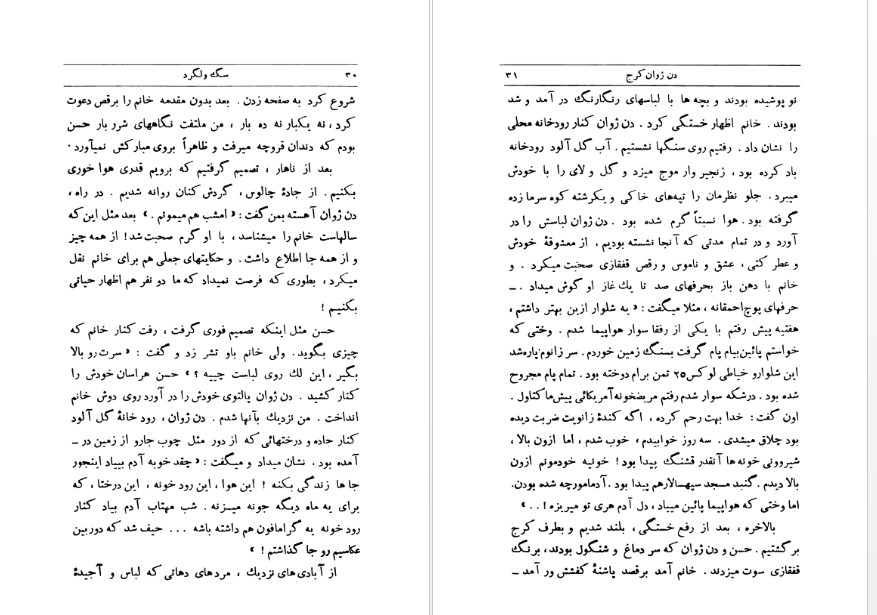 ۳۰ سگ ولگرد
شروع کرد به صفحه زدن. بعد بدون مقدمه خانم را برقص دعوت
کرد، نه یکبار نه ده بار، من ملتفت نگاههای شرر بار حسن
بودم که دندان قروچه میرفت و ظاهراً بروی مبارکش نمیآورد.
بعد از ناهار، تصمیم گرفتیم که برویم قدری هوا خوری
بکنیم. از جادهٔ چالوس، گردش کنان روانه شدیم. در راه،
دن ژوان آهسته بمن گفت: «امشب هم میمونم.» بعد مثل این که
سالهاست خانم را میشناسد، با او گرم صحبت شد! از همه چیز
و از همه جا اطلاع داشت. و حکایتهای جعلی هم برای خانم نقل
میکرد، بطوری که فرصت نمیداد که ما دو نفر هم اظهار حیاتی
بکنیم!
حسن مثل اینکه تصمیم فوری گرفت، رفت کنار خانم که
چیزی بگوید. ولی خانم باو تشر زد و گفت: «سرت رو بالا
بگیر، این لك روی لباست چییه؟» حسن هراسان خودش را
کنار کشید. دن ژوان پالتوی خودش را در آورد روی دوش خانم
انداخت. من نزدیك بآنها شدم. دن ژوان، رود خانهٔ گل آلود
کنار جاده و درختهائی که از دور مثل چوب جارو از زمین در ـ
آمده بود. نشان میداد و میگفت: «چقد خوبه آدم بیاد اینجور
جا ها زندگی بکنه! این هوا، این رود خونه، این درختا، که
برای یه ماه دیگه جونه میزنه. شب مهتاب آدم بیاد کنار
رود خونه یه گرامافون هم داشته باشه ... حیف شد که دوربین
عکاسیم رو جا گذاشتم!»
از آبادی های نزدیك، مردهای دهاتی که لباس و آجیدهٔ
دن ژوان کرج ۳۱
نو پوشیده بودند و بچه ها با لباسهای رنگارنگ در آمد و شد
بودند. خانم اظهار خستگی کرد. دن ژوان کنار رودخانه محلی
را نشان داد. رفتیم روی سنگها نشستیم. آب گل آلود رودخانه
باد کرده بود، زنجیر وار موج میزد و گل و لای را با خودش
میبرد. جلو نظرمان را تپه‌های خاکی و یکرشته کوه سرما زده
گرفته بود. هوا نسبتاً گرم شده بود. دن ژوان لباسش را در
آورد و در تمام مدتی که آنجا نشسته بودیم، از معشوقهٔ خودش
و عطر کتی، عشق و ناموس و رقص قفقازی صحبت میکرد. و
خانم با دهن باز بحرفهای صد تا یك غاز او گوش میداد. ـ
حرفهای پوچ احمقانه، مثلا میگفت: «یه شلوار ازین بهتر داشتم،
هفتیه پیش رفتم با یکی از رفقا سوار هواپیما شدم. وختی که
خواستم پائین بیام پام گرفت بسنگ زمین خوردم. سر زانوم پاره شد
این شلوارو خیاطی لوکس ۲۵ تمن برام دوخته بود. تمام پام مجروح
شده بود. درشکه سوار شدم رفتم مریضخونه آمریکائی پیش ماکتاول.
اون گفت: خدا بهت رحم کرده، اگه کندهٔ زانویت ضربت دیده
بود چلاق میشدی. سه روز خوابیدم، خوب شدم، اما ازون بالا،
شیروونی خونه ها آنقدر قشنگ پیدا بود! خونیه خودمونم ازون
بالا دیدم. گنبد مسجد سپهسالارهم پیدا بود. آدما مورچه شده بودن.
اما وختی که هواپیما پائین میباد، دل آدم هری تو میریزه!..»
بالاخره، بعد از رفع خستگی، بلند شدیم و بطرف کرج
برگشتیم. حسن و دن ژوان که سر دماغ و شنگول بودند، برنگ
قفقازی سوت میزدند. خانم آمد برقصد پاشنهٔ کفشش ور آمد ـ